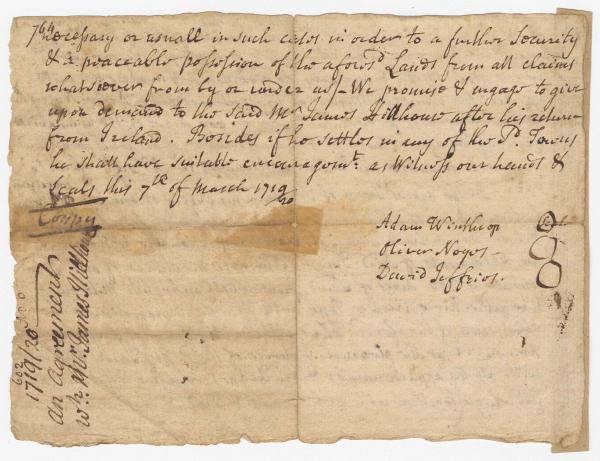 764
necessary or usuall in such cases in order to a further Security
& a peaceable possession of the aforesd Lands from all claims
whatsoever from by or under us/- We promise & ingage to give
upon demand to the said Mr James Hillhouse after his return
from Ireland. Besides if he settles in any of the sd. Towns
he shall have suitable encouragemt: as Witness our hands &
Seals this 7th of March 1719/20
Coppy
Adam Winthrop
Oliver Noyes
David Jeffries.
602
1719/20
an agreement
wth Mr James Hillhouse